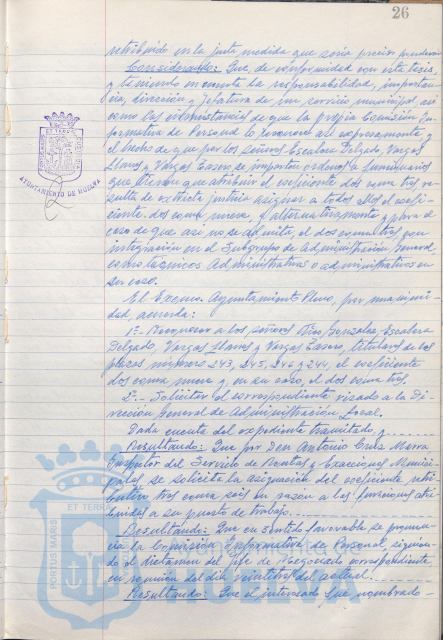 26
retribuido en la justa medida que sería preciso
Considerando: Que, de conformidad con esta tesis,
y teniendo en cuenta la responsabilidad, importan-
cia, dirección y Jefatura de un servicio municipal, así
como las circunstancias de que la propia Comisión In-
formativa de Personal lo reconoce así expresamente, y
el hecho de que por los señores Escalera Delgado, Vargas
Llanes y Vargas Lasero se imparten órdenes a funcionarios
que tienen que atribuir el coeficiente dos coma tres re-
sulta de estricta justicia asignar a todos ellos el coefi-
ciente dos coma nueve, y alternativamente y para el
caso de que así no se admita, el dos coma tres con
integración en el Subgrupo de Administración General,
como técnicos Administrativos o administrativos en
su caso.
El Excmo. Ayuntamiento Pleno, por unanimi-
dad, acuerda:
1º.- Reconocer a los señores González, Escalera
Delgado, Vargas Llanes y Vargas Lasero, titulares de las
plazas número 243, 245, 246 y 244, el coeficiente
dos coma nueve y, en su caso, el dos coma tres
2º.- Solicitar el correspondiente visado a la Di-
rección General de Administración Local.
Dada cuenta del expediente tramitado, y
Resultando: Que por Don Antonio Cruz
Inspector del Servicio de Rentas y Exacciones Munici-
pales se solicita la asignación del coeficiente retri-
butivo tres coma seis en razón a las funciones atri-
buidas a su puesto de trabajo.
Resultando: Que en sentido favorable se pronun-
cia la Comisión Informativa de Personal, siguien-
do el dictamen del Jefe de Negociado correspondiente,
en reunión del día veintitrés del actual.
Resultando: Que el interesado fue nombrado
AYUNTAMIENTO DE HUELVA
ET TERRAE
PORTUS MARIS
HUELVA